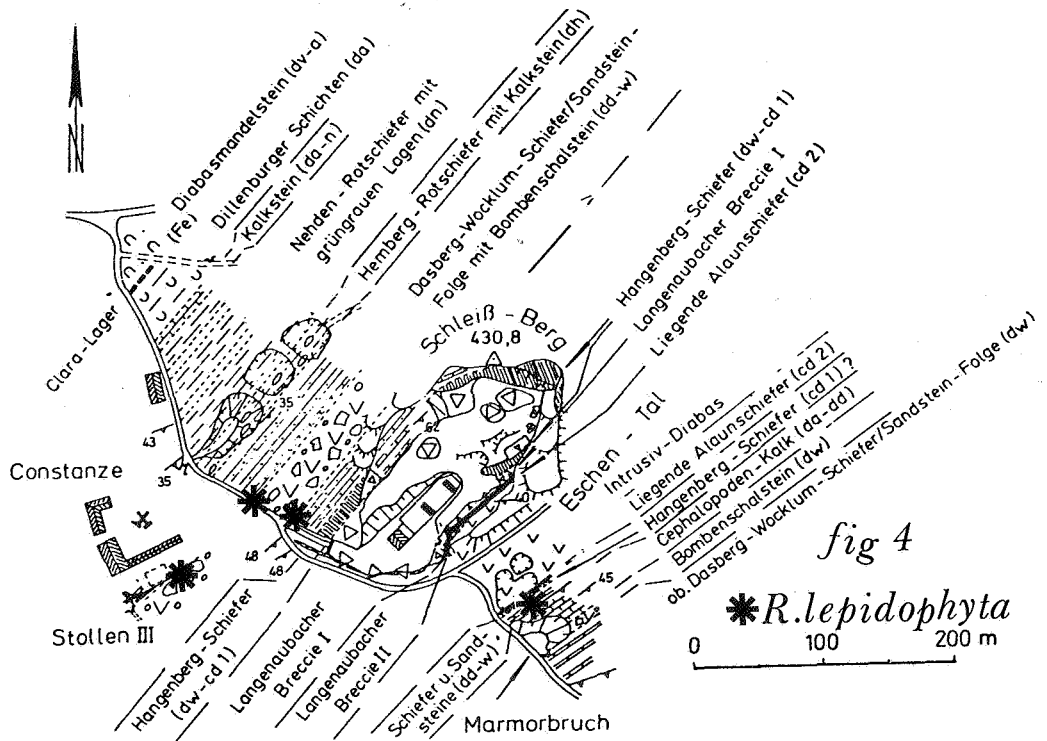 N
Diabasmandelstein (dv-a)
(Fe)
Dillenburger Schichten (da)
Kalkstein (da-n)
Nehden - Rotschiefer mit
grüngrauen Lagen (dn)
Hemberg - Rotschiefer mit Kalkstein (dh)
Dasberg - Wocklum - Schiefer/Sandstein -
Folge mit Bombenschalstein (dd-w)
Hangenberg - Schiefer (dw-cd 1)
Langenaubacher Breccie I
Liegende Alaunschiefer (cd 2)
Clara - Lager
Schleiß - Berg
430,8
Eschen - Tal
Intrusiv - Diabas
Liegende Alaunschiefer (cd 2)
Hangenberg - Schiefer (cd 1) ?
Cephalopoden - Kalk (da-dd)
Bombenschalstein (dw)
ob. Dasberg - Wocklum - Schiefer/Sandstein - Folge (dw)
43
35
35
62
40
48
48
45
Constanze
Stollen III
Hangenberg - Schiefer
(dw-cd 1)
Langenaubacher
Breccie I
Langenaubacher
Breccie II
Schiefer u. Sand-
steine (dd-w)
Marmorbruch
fig 4
R. lepidophyta
0 100 200 m